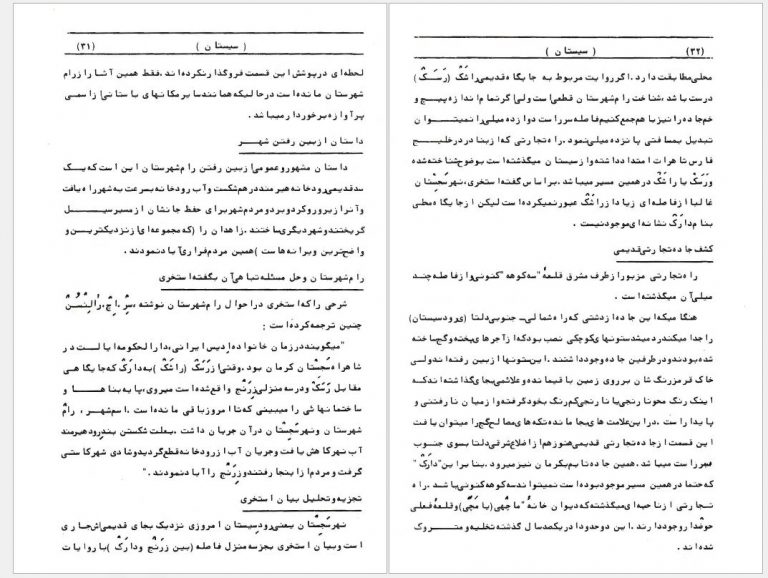 ( سیستان ) (۳۱)
لحظه‌ای درپوشش این قسمت فروگذار نکرده‌اند، فقط همین آشا رزرام
شهرستان مانده است درحالیکه همانند سایر مکانهای باستانی از اسمی
پرآوازه برخوردار میباشد .
داستان ازبین رفتن شهر
داستان مشهور و عمومی ازبین رفتن رام‌شهرستان این است که یک
سد قدیمی رودخانه هیرمند درهم شکست و آب رودخانه بسرعت به شهر راه یافت
و آنرا زیر و رو کرد و برد و مردم شهر برای حفظ جانشان از مسیر سیل
گریختند و شهر دیگری ساختند. زاهدان را (که مجموعه‌ای از نزدیکترین و
واضح‌ترین ویرانه‌هاست ) همین مردم فراری آباد نمودند.
رام شهرستان و حل مسئله تباهی آن بگفته استخری
شرحی راکه استخری دراحوال رام شهرستان نوشته ،
چنین ترجمه کرده است :
"میگویند در زمان خانواده ادیس ایرانی، دارالحکومه ایالت در
شاهراه سَجِستان کرمان بود. وقتی از زَرَسَک (راشَک ) به دارَک که جایگاهی
مقابل رَسَک و در سه منزلی زَرَنج واقع شده است میروی، پایه بناها و
ساختمانهائی را می‌بینی که تا امروز باقی مانده است . اسم شهر ، رام
شهرستان و نهر سَجِستان در آن جریان داشت ، بعلت شکستن بند رود هیرمند
آب نهر کاهش یافت و جریان آب از رودخانه قطع گردید و شادی شهر کاستی
گرفت و مردم از اینجا رفتند و زَرَنج را آباد نمودند ."
تجزیه و تحلیل بیان استخری
نهر سَجِستان یعنی رود سیستان امروزی نزدیک بجای قدیمی‌اش جاری
است و بیان استخری بجز سه منزل فاصله (بین زَرَنج و دارَک ) با روایات
( سیستان ) (۳۲)
محلی مطابقت دارد. اگر روایت مربوط به جایگاه قدیمی راشَک (رَسَک )
درست باشد، شناخت رام شهرستان قطعی است ولی اگر تمام اندازه پیچ و
خم جاده را نیز با هم جمع کنیم فاصله سرراست دوازده میلی را نمیتوان
تبدیل بمسافتی پانزده میلی نمود. راه تجارتی که از بنادر در خلیج
فارس تا هرات امتداد داشته و از سیستان میگذشته است بوضوح شناخته شده
و رَسَک یا راشَک در همین مسیر میباشد. براساس گفته استخری، نهر سَجِستان
غالبا از فاصله‌ای زیاد از راشَک عبور نمیکرده است لیکن از جایگاه محلی
بنام دارَک نشانه‌ای موجود نیست .
کشف جاده تجارتی قدیمی
راه تجارتی مزبور از طرف مشرق قلعهٔ "سه کوهه " کنونی و از فاصله چند
میلی آن میگذشته است .
هنگامیکه این جاده از دشتی که راه شمالی - جنوبی دلتا (ی رود سیستان)
را جدا میکند رد میشد ستونهای کوچکی نصب بود که از آجرهای پخته و گچ ساخته
شده بودند و در طرفین جاده وجود داشتند. این ستونها از بین رفته‌اند ولی
خاک قرمز رنگشان بر روی زمین باقیمانده و علائمی بجای گذاشته‌اند که
اینک رنگ محو نارنجی یا نارنجی کم رنگ بخود گرفته و از میان نارفتنی و
پایدار است . در این علامت‌های بجا مانده تکه‌های مصالح گچ را میتوان یافت
این قسمت از جاده تجارتی قدیمی هنوز هم از اضلاع شرقی دلتا بسوی جنوب
میباشد. همین جاده تا بیم کرمان نیز میرود. بنابراین "دارَک "
که حتما در همین مسیر موجود بوده است نمیتواند سه کوهه کنونی باشد. راه
تجارتی از ناحیه‌ای میگذشته که دیوان خانهٔ "ماچُهی (یا مَچّی) و قلعهٔ فعلی
حوضدار وجود دارند. این دو حدودا در یکصد سال گذشته تخلیه و متروک
شده‌اند .